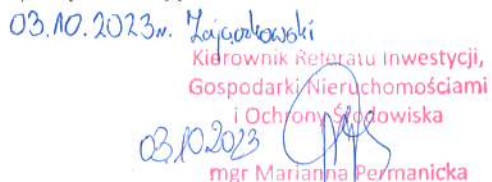 03.10.2023r. Zajączkowski
Kierownik Referatu Inwestycji,
Gospodarki Nieruchomościami
i Ochrony Środowiska
03.10.2023
mgr Marianna Permanicka